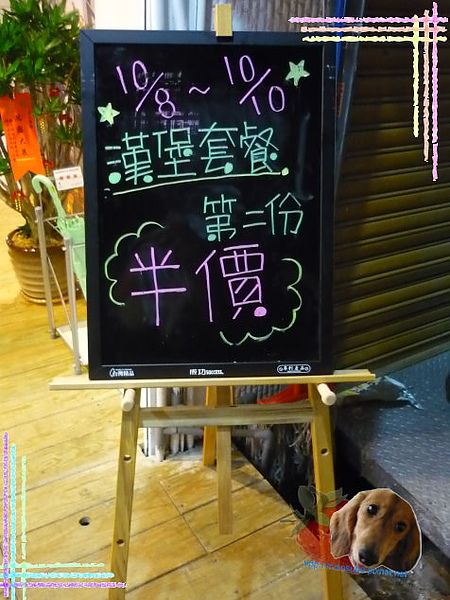 10/8~10/10
漢堡套餐
第二份
半價
成功